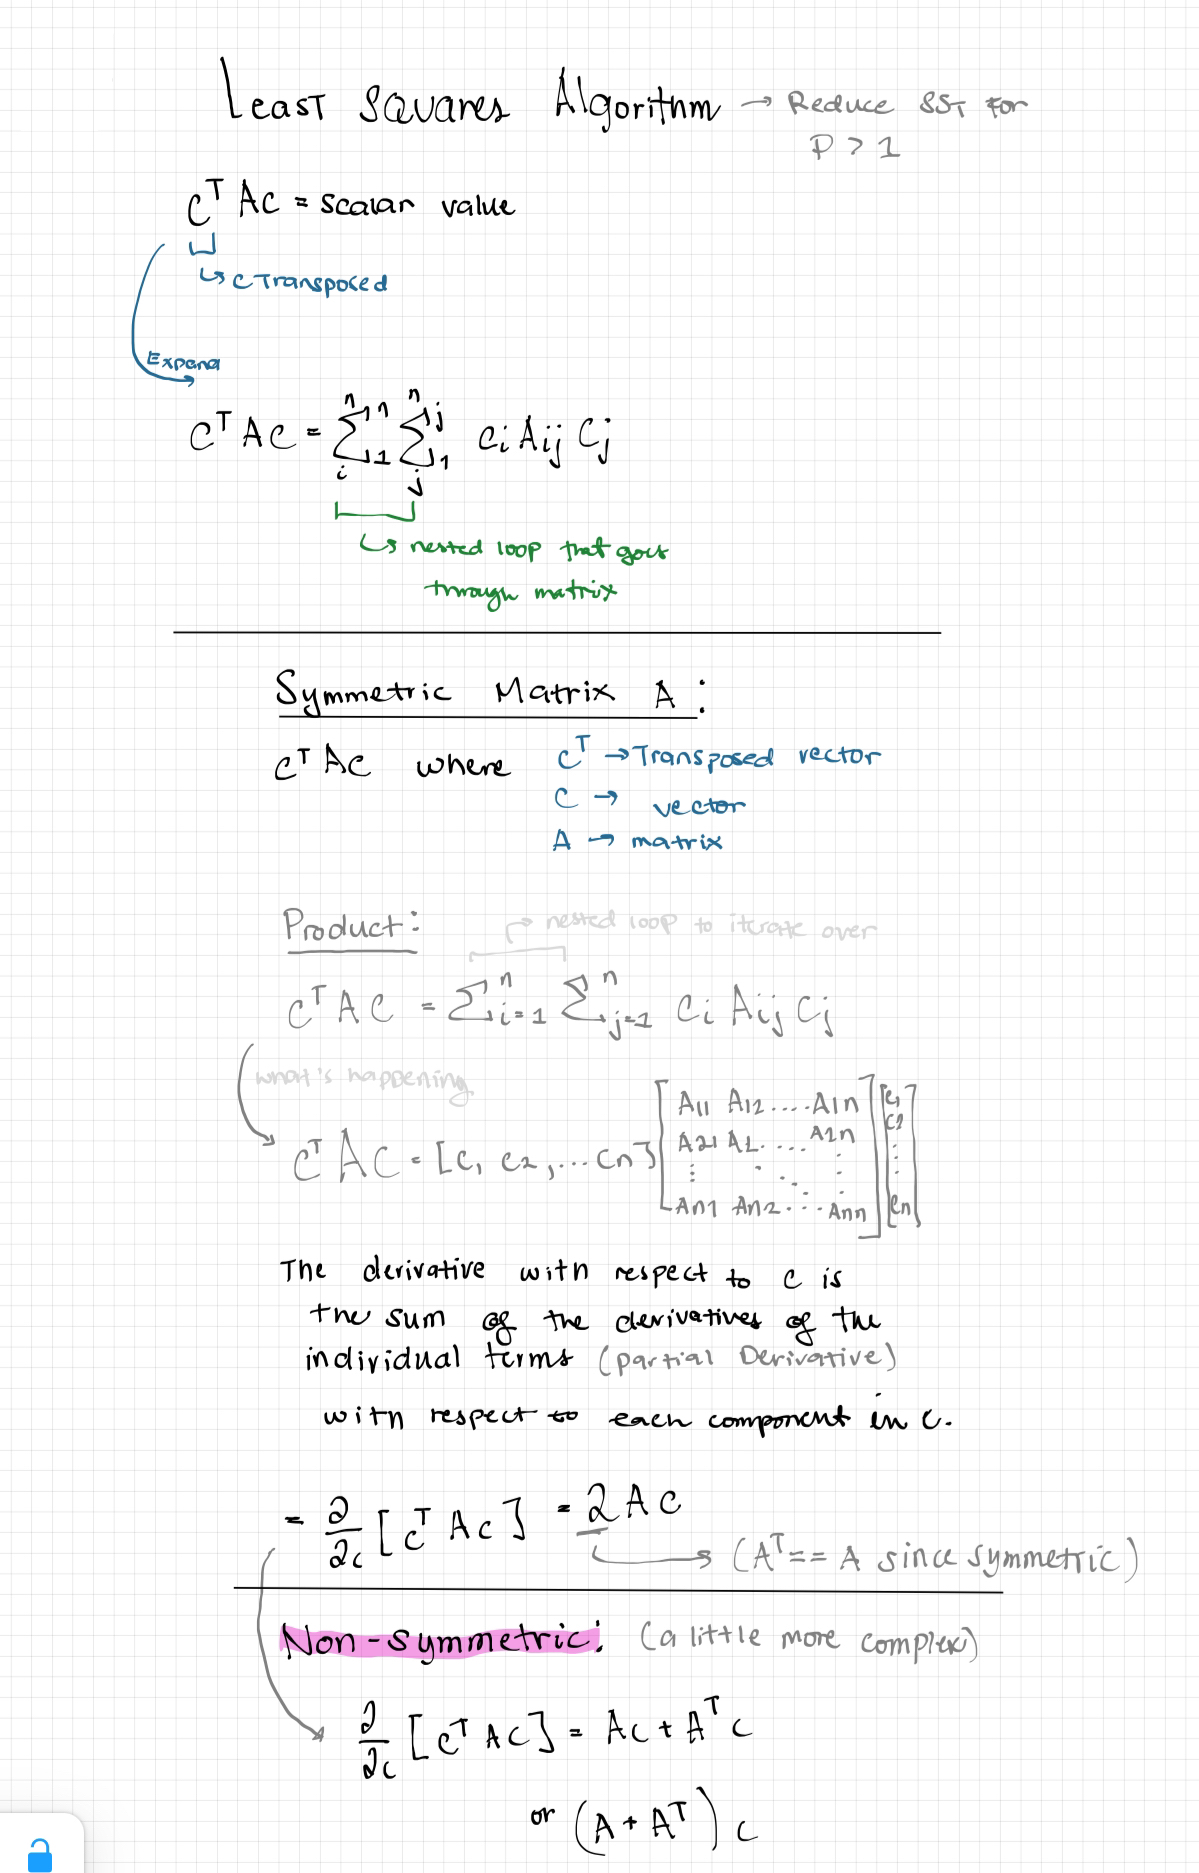 Least Squares Algorithm → Reduce SST for
P > 1
Cᵀ AC = scalar value
↳ C Transposed
Expand
Cᵀ AC = n Σ i 1 n n Σ j 1 j Ci Aij Cj
↳ nested loop that goes
through matrix
Symmetric Matrix A :
Cᵀ AC where Cᵀ → Transposed vector
C → vector
A → matrix
Product: nested loop to iterate over
Cᵀ A C = Σ i=1 n Σ j=1 n Ci Aij Cj
what's happening
Cᵀ AC = [C1 C2 ,... Cn] [ A11 A12 .... A1n ] [C1
A21 A2. .... A2n C2
⋮ ⋱ ⋮ ⋮
An1 An2 ... Ann ] Cn]
The derivative with respect to C is
the sum of the derivatives of the
individual terms (partial Derivative)
with respect to each component in C.
= ∂/∂c [Cᵀ AC] = 2AC
→ (Aᵀ == A since symmetric)
Non-symmetric: (a little more complex)
∂/∂c [Cᵀ AC] = AC + Aᵀ C
or (A + Aᵀ) C